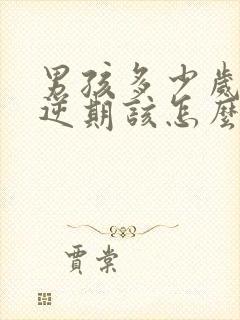 男孩多少歲
逆期該怎麼
賈棠